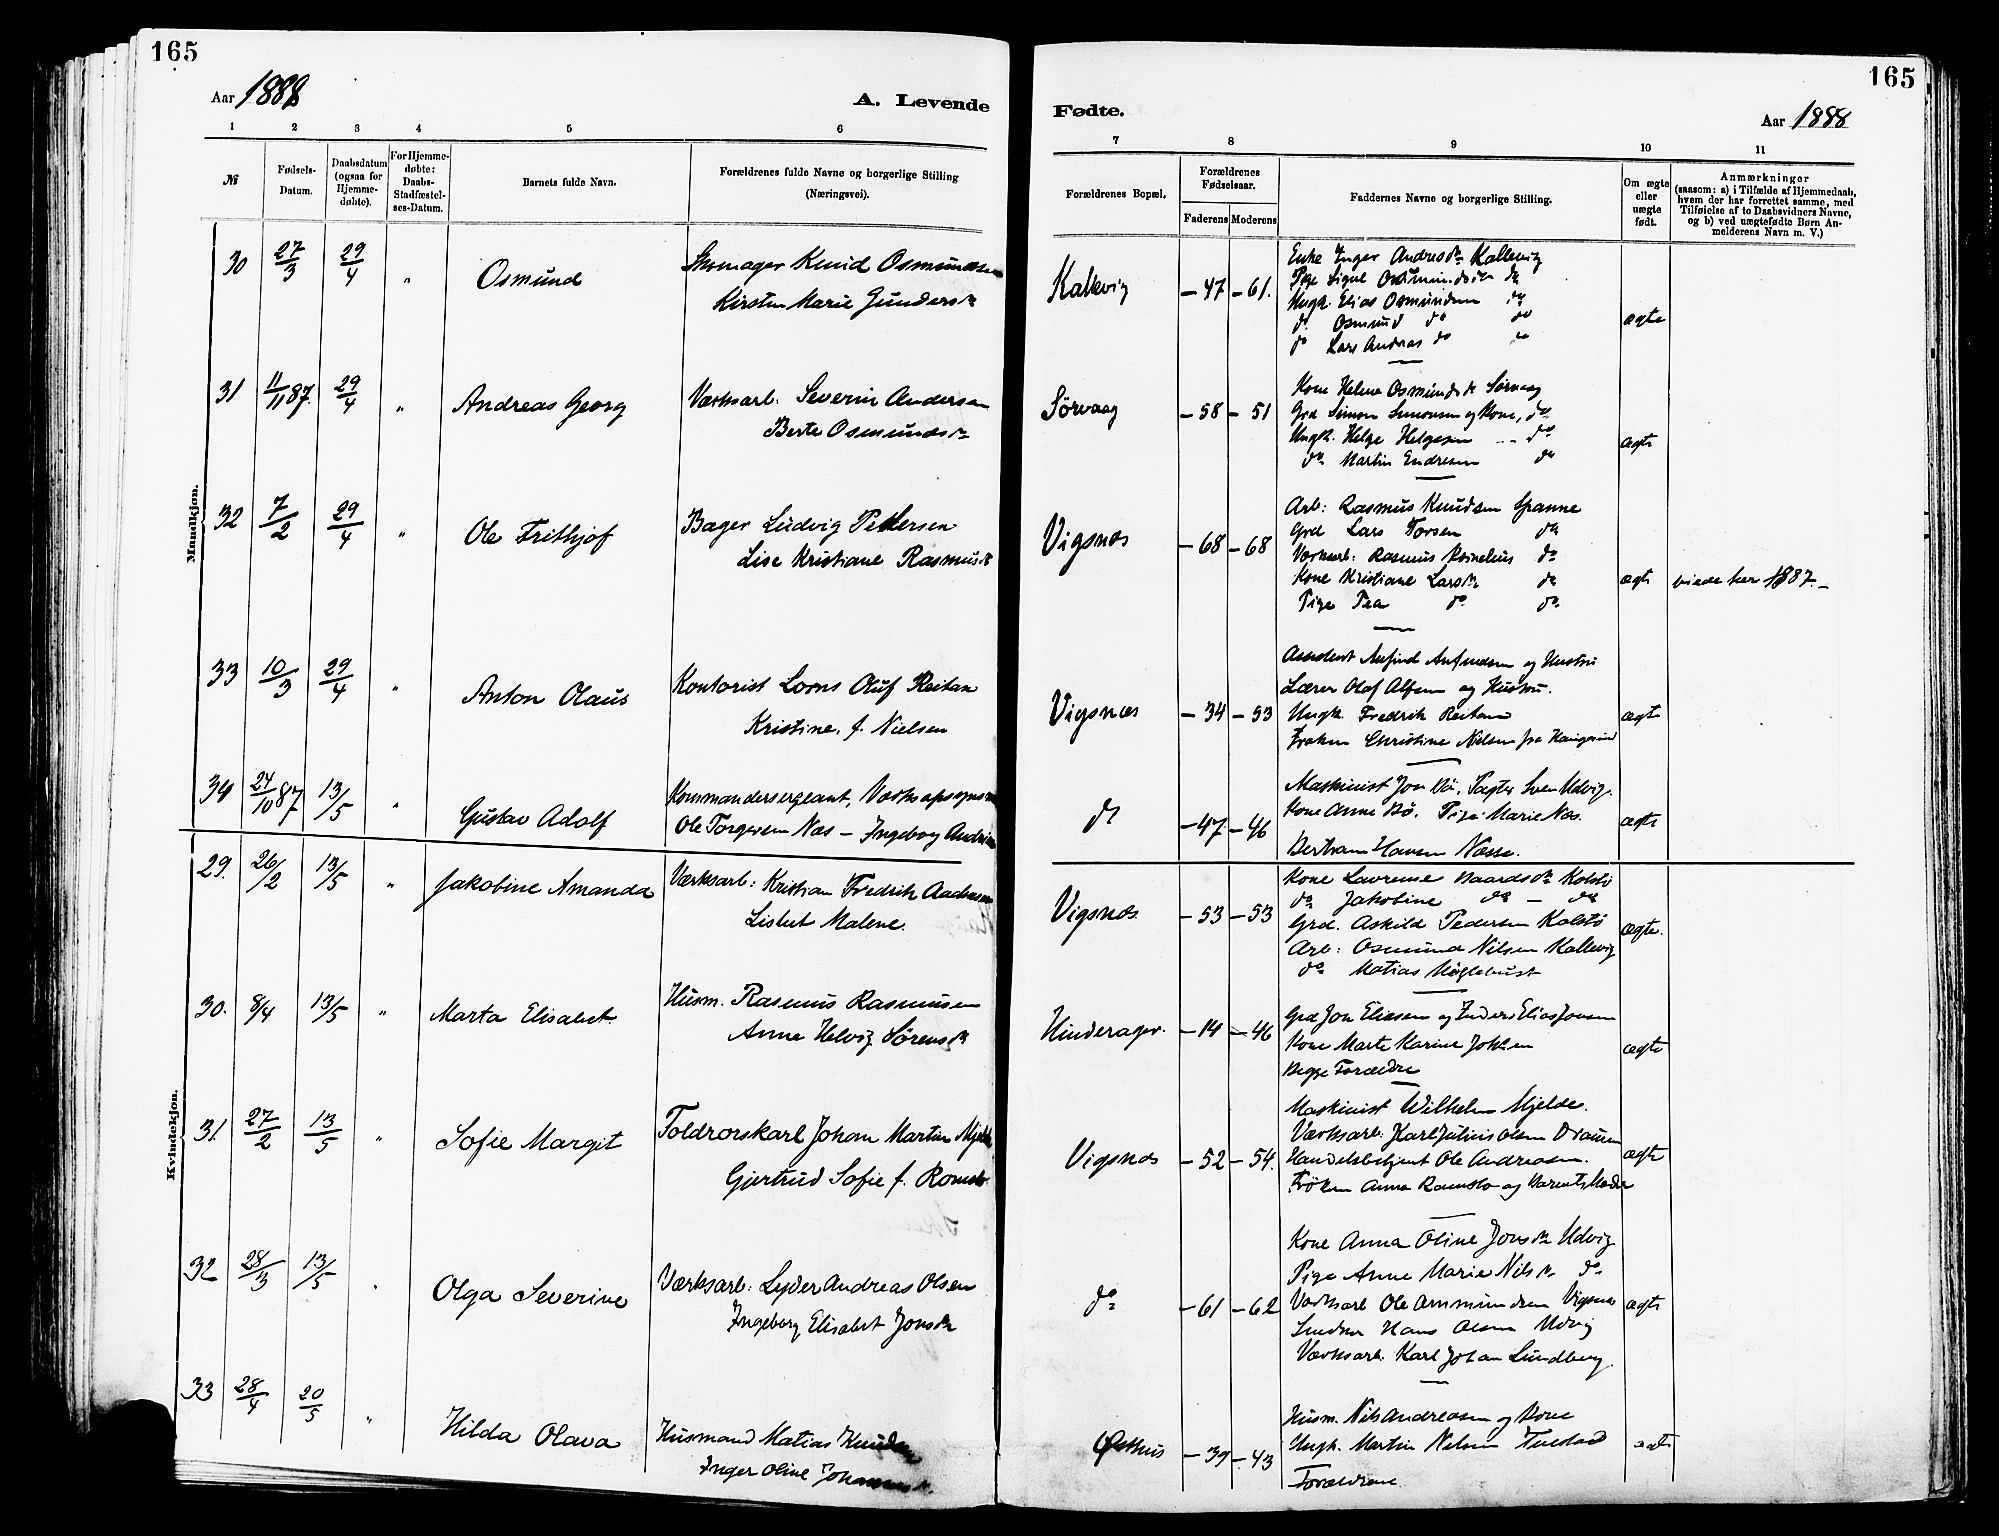 165
165
Aar 1888
A. Levende
Fødte.
Aar 1888
1 2 3 4 5 6
7 8 9 10 11
№
Fødsels-
Datum.
Daabsdatum
(ogsaa for
Hjemme-
døbte).
For Hjemme-
døbte:
Daabs-
Stadfæstel-
ses-Datum.
Barnets fulde Navn.
Forældrenes fulde Navne og borgerlige Stilling
(Næringsvei).
Forældrenes Bopæl.
Forældrenes
Fødselsaar.
Faderens Moderens
Faddernes Navne og borgerlige Stilling.
Om ægte
eller
uægte
født.
Anmærkninger
(saasom: a) i Tilfælde af Hjemmedaab,
hvem der har forrettet samme, med
Tilføielse af to Daabsvidners Navne,
og b) ved uægtefødte Børn An-
melderens Navn m. V.)
Mandkjøn.
30 27/3 29/4 " Osmund
Skomager Knud Osmundsen
Kirsten Marie Gundersdr
Kallevig -47 -61.
Enke Inger Andresdr Kallevig
Pige Signe Osmundsdr do
Ungk. Elias Osmundsen do
do Osmund do do
do Lars Andreas do do
ægte
31 11/11 87. 29/4 " Andreas Georg
Værksarb: Severin Andersen
Berte Osmundsdr
Sörvaag -58 -51
Kone Helene Osmundsdr Sörvaag
Grd Simon Simonsen og Kone, do
Ungk. Helge Helgesen do
do Martin Endresen do
ægte
32 7/2 29/4 " Ole Frithjof
Bager Ludvig Pettersen
Lise Kristiane Rasmusdr
Vigsnæs -68 -68
Arb: Rasmus Knudsen Spanne
Grd Lars Torsen do
Værksarb: Rasmus Kornelius do
Kone Kristiane Larsdr do
Pige Tea do do
ægte viede her 1887.-
33 10/3 29/4 " Anton Olaus
Kontorist Lorns Oluf Reitan
Kristine, f. Nielsen
Vigsnæs -34 -53
Assistent Anfind Anfindsen og Hustru
Lærer Olaf Alfsen og Hustru.
Ungk. Fredrik Reitan
Frøken Christine Nielsen fra Haugesund
ægte
34 24/10 87 13/5 " Gustav Adolf
Kommandersergeant, Værksopsyns
Ole Torgersen Næs - Ingeborg
do -47 -46
Maskinist Jon Bö, Pagter Sven Udvig.
Kone Anne Bö, Pige Marie Næs.
Bertram Hansen Næsse.
ægte
Kvindekjøn.
29. 26/2 13/5 " Jakobine Amanda
Værksarb: Kristian Fredrik Aadnesen
Lisbet Malene.
Vigsnæs -53 -53
Kone Lavrense Baardsdr Kolstö
do Jakobine do - do
Grd. Askild Pedersen Kolstö
Arb: Osmund Nilsen Kallevig
do Matias
ægte.
30. 8/4 13/5 " Marta Elisabet.
Husm. Rasmus Rasmussen
Anne Helvig Sörensdr
Hinderager. -14 -46
Grd Jon Eliasen og Elias Jonsen
Kone Marte Karine
Begge Forældre
ægte
31. 27/2 13/5 " Sofie Margit
Toldrorskarl Johan Martin Mjelde
Gjertrud Sofie f. Romslo
Vigsnæs -52 -54.
Maskinist Wilhelm Mjelde.
Værksarb: Karl Julius Olsen
Handelsbetjent Ole Andreasen.
Fröken Anna Ramslo og Barnets Moder
ægte
32 28/3 13/5 " Olga Severine
Værksarb: Lyder Andreas Olsen
Ingeborg Elisabet Jonsdr
do -61 -62
Kone Anna Oline Jonsdr Udvig
Pige Anne Marie Nilsdr do
Værksarb Ole Ammundsen Vigsnæs
Hans Olsen Udvig
Værksarb: Karl Johan Lundberg.
ægte
33 28/4 20/5 " Hilda Olava
Husmand Matias Knudsen
Inger Oline
Østhus -39 -43
Husm. Nils Andreasen og Kone
Ungk. Martin Nelsen
Forældrene.
ægte